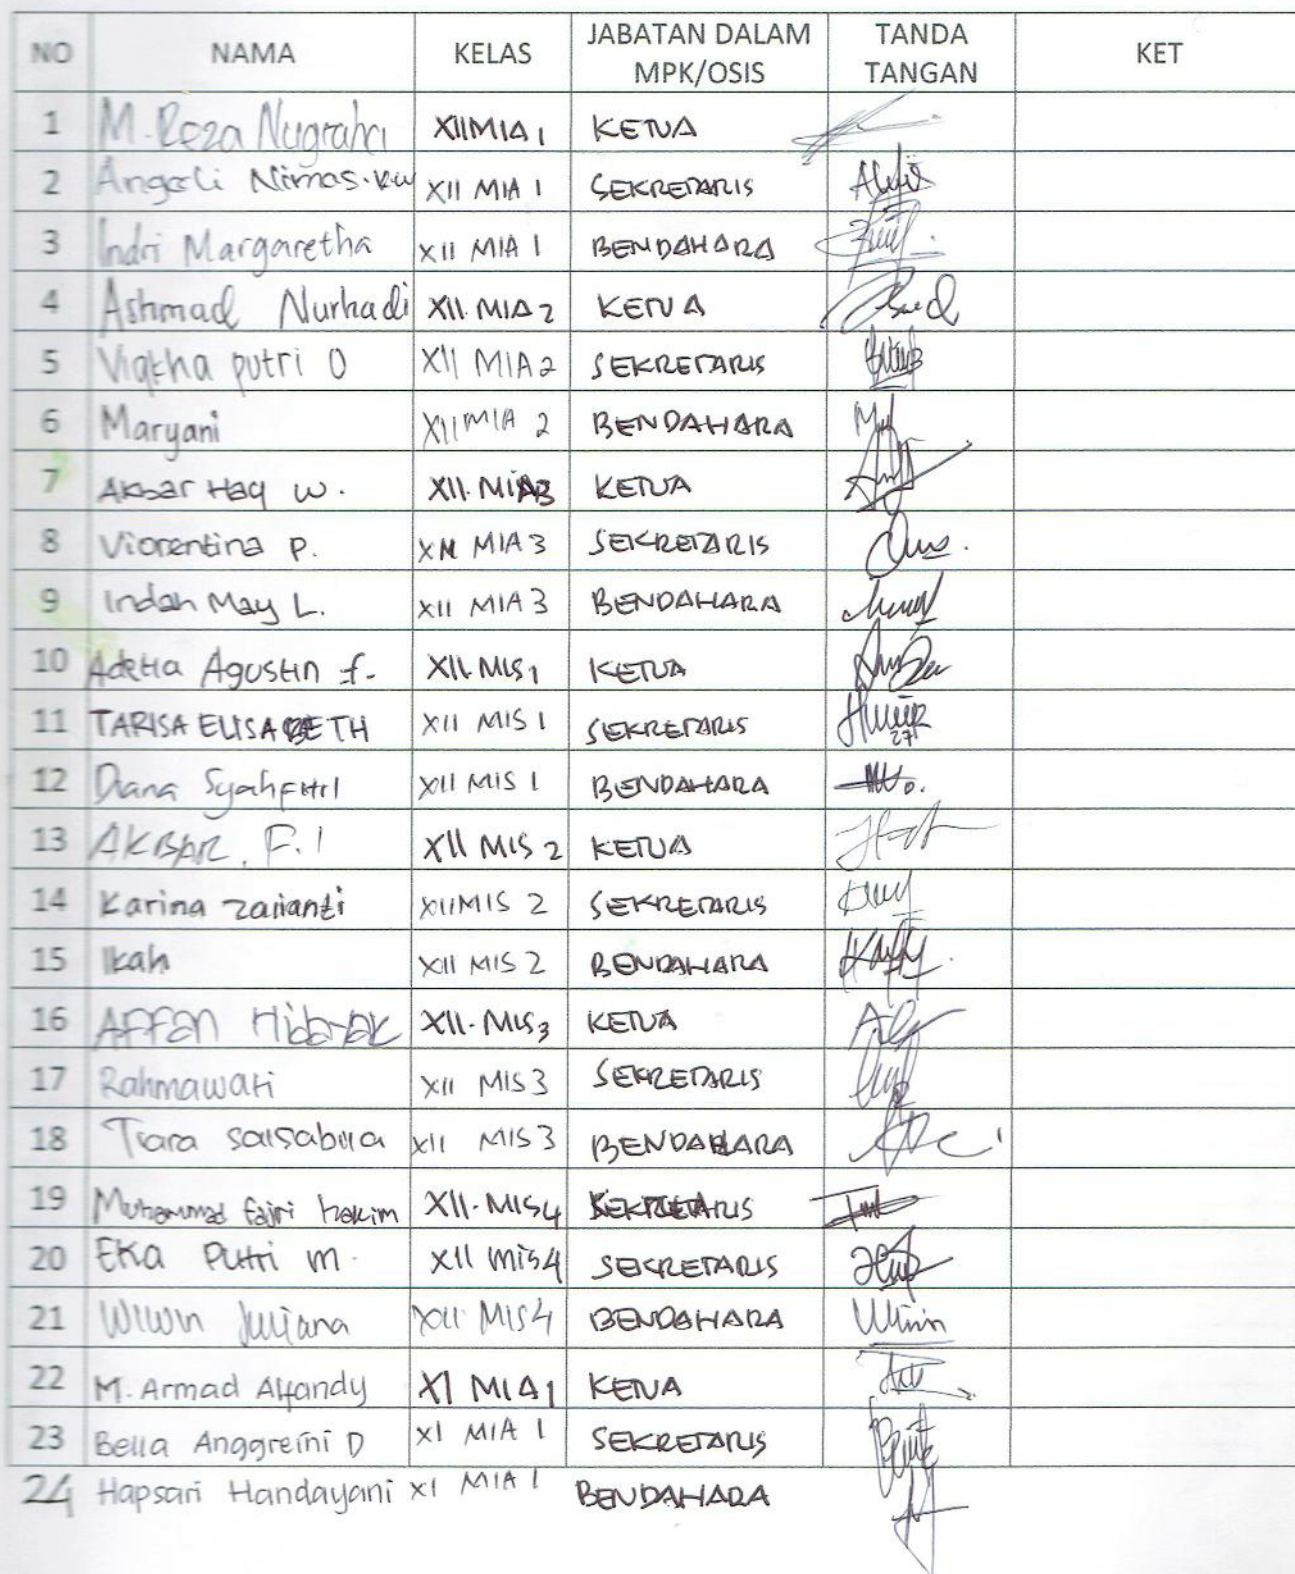 NO NAMA KELAS JABATAN DALAM MPK/OSIS TANDA TANGAN KET
1 M. Reza Nugraha XII MIA 1 KETUA
2 Angeli Nimas. XII MIA 1 SEKRETARIS
3 Indri Margaretha XII MIA 1 BENDAHARA
4 Ashmad Nurhadi XII. MIA 2 KETUA
5 putri O XII MIA 2 SEKRETARIS
6 Maryani XII MIA 2 BENDAHARA
7 Akbar Haq W. XII. MIA3 KETUA
8 Viorentina P. XII MIA 3 SEKRETARIS
9 Indah May L. XII MIA 3 BENDAHARA
10 Adetia Agustin f. XII. MIS 1 KETUA
11 TARISA ELISABETH XII MIS 1 SEKRETARIS
12 Diana Syahfitri XII MIS 1 BENDAHARA
13 AKBAR. F. I XII MIS 2 KETUA
14 Karina zarianti XII MIS 2 SEKRETARIS
15 Ikah XII MIS 2 BENDAHARA
16 AFFan Hidayat XII. MIS 3 KETUA
17 Rahmawati XII MIS 3 SEKRETARIS
18 Tiara salsabila XII MIS 3 BENDAHARA
19 Muhammad fajri hakim XII. MIS 4 SEKRETARIS
20 EKa Putri M. XII Mis 4 SEKRETARIS
21 Wiwin Juliana XII MIS 4 BENDAHARA
22 M. Armad Alfandy XI MIA 1 KETUA
23 Bella Anggreini D XI MIA 1 SEKRETARIS
24 Hapsari Handayani XI MIA 1 BENDAHARA